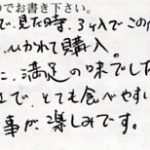 のでお書き下さい。
で見た時、3ヶ入でこの
いかれて購入。
に、満足の味でした
で、とても食べやすい
事が楽しみです。